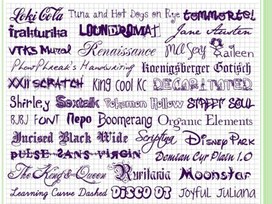 Loki Cola Tuna and Hot Dogs on Rye Tommortel
frakturika LOUNDROMAT Jane Austen
VTKS Mural Renaissance McSexy Kaileen
PhontPhreak's Handwriting Koenigsberger Gotisch
XXII SCRATCH King Cool KC DECAPITATED
Shirley Hollow STREET SOUL
BJBJ FONT Nepo Boomerang Organic Elements
Incised Black Wide Scriptina Disney Park
PULSE SANS VIRGIN Demian Cyr Plain 1.0
The King & Queen Ruritania Moonstar
Learning Curve Dashed DISCO OT Joyful Juliana